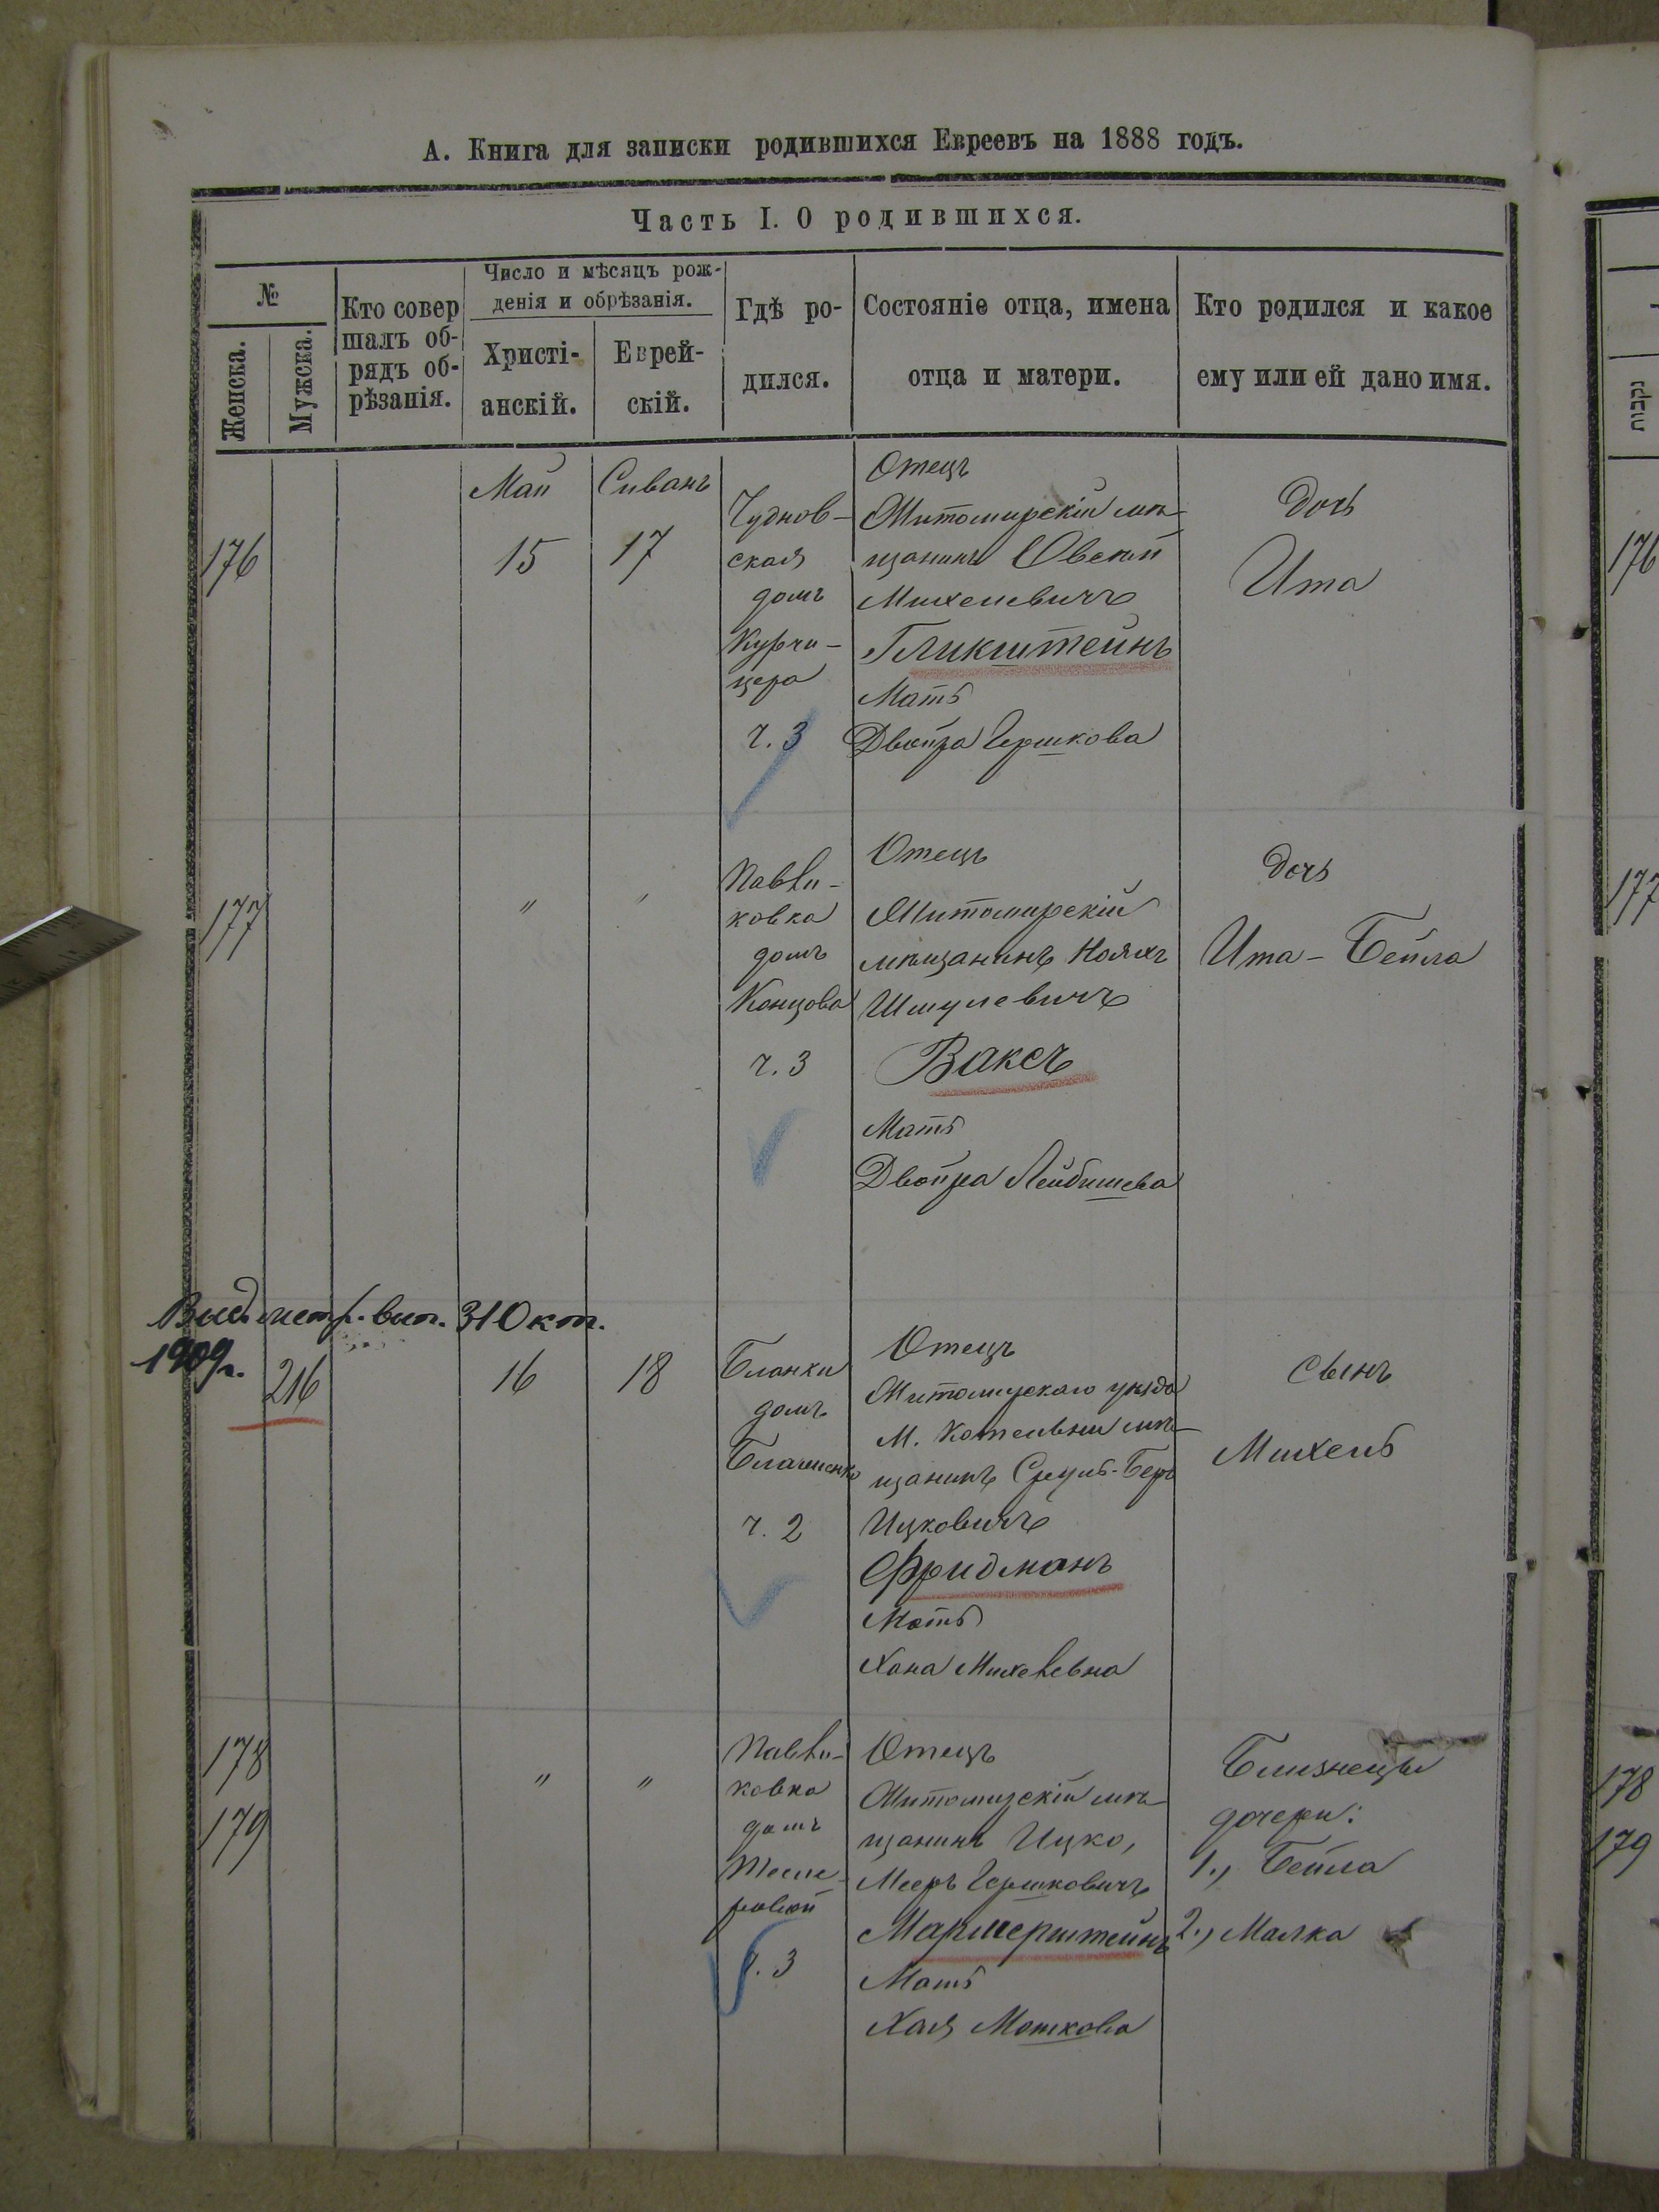 А. Книга для записки родившихся Евреевъ на 1888 годъ.
Часть I. О родившихся.
№
Женска.
Мужска.
Кто совер
шалъ об-
рядъ об-
рѣзанія.
Число и мѣсяцъ рож-
денія и обрѣзанія.
Христі-
анскій.
Еврей-
скій.
Гдѣ ро-
дился.
Состояніе отца, имена
отца и матери.
Кто родился и какое
ему или ей дано имя.
נקבות
176
Май
15
Сиванъ
17
Чуднов-
ская
домъ
Курчи-
цера
ч. 3
Отецъ
Житомирскій мѣ-
щанинъ Овсей
Михелевичъ
Гликштейнъ
Мать
Двойра Гершкова
Дочь
Ита
176
177
"
"
Павли-
ковка
домъ
Концова
ч. 3
Отецъ
Житомирскій
мѣщанинъ Нояхъ
Шмулевичъ
Ваксъ
Мать
Двойра Лейбишева
Дочь
Ита-Бейла
177
Выд. метр. вып. 310 кт.
1909г.
216
16
18
Бланки
домъ
ч. 2
Отецъ
Житомирскаго уѣзда
М. Котельни мѣ-
щанинъ Сруль-Беръ
Ицковичъ
Фридманъ
Мать
Хана Михелевна
Сынъ
Михель
178
179
"
"
Павли-
ковка
домъ
ч. 3
Отецъ
Житомирскій мѣ-
щанинъ Ицко,
Мееръ Гершковичъ
Мармерштейнъ
Мать
Хая Мошкова
Близнецы
дочери:
1., Бейла
2., Малка
178
179